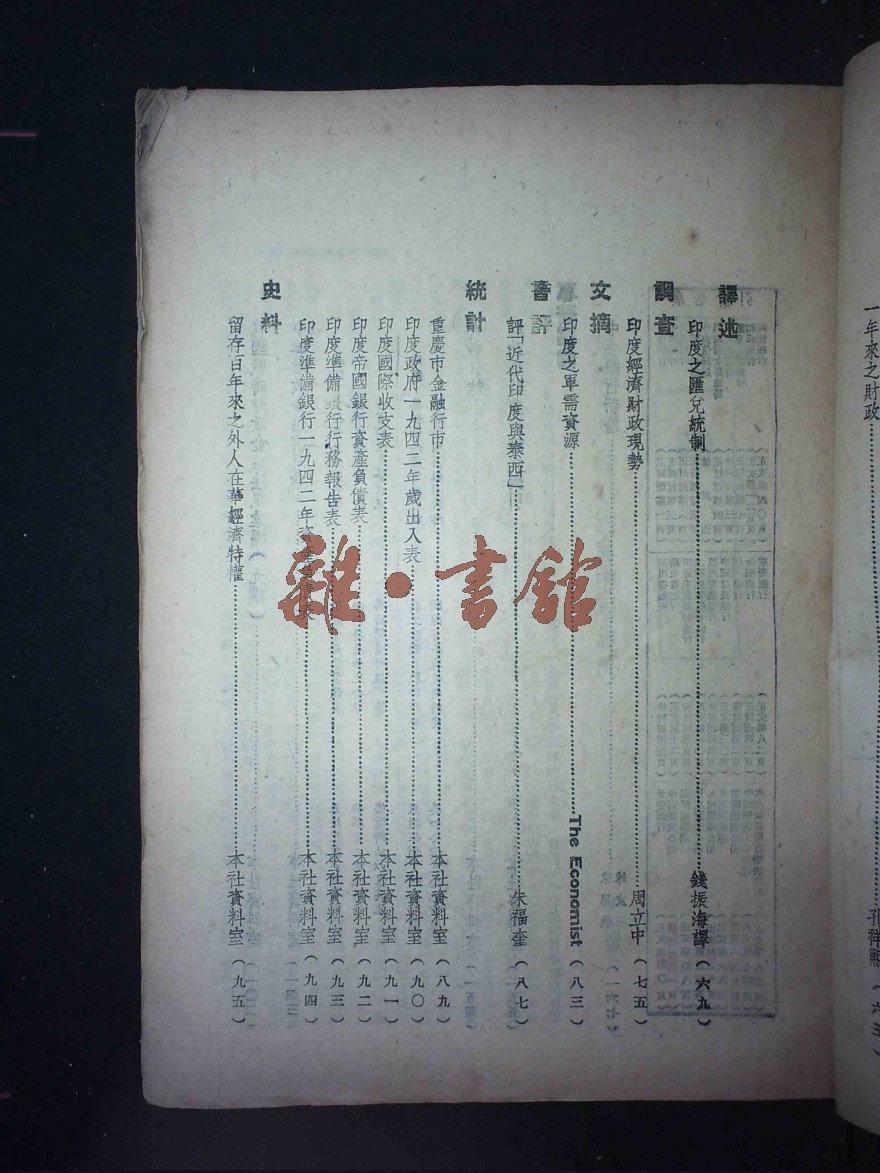 一年來之財政……孔祥熙(六三)
譯述
印度之匯兌統制……錢振海譯(六九)
調查
印度經濟財政現勢……周立中(七五)
文摘
印度之軍需資源……The Economist(八三)
書評
評「近代印度與泰西」……朱福奎(八七)
統計
重慶市金融行市……本社資料室(八九)
印度政府一九四二年歲出入表……本社資料室(九〇)
印度國際收支表……本社資料室(九一)
印度帝國銀行資產負債表……本社資料室(九二)
印度準備銀行行務報告表……本社資料室(九三)
印度準備銀行一九四二年……本社資料室(九四)
史料
留存百年來之外人在華經濟特權……本社資料室(九五)
雜·書館